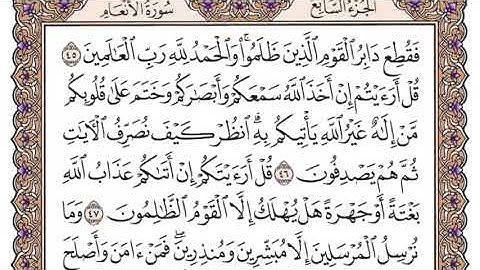 الجزء السابع سورة الأنعام
فَقُطِعَ دَابِرُ ٱلْقَوْمِ ٱلَّذِينَ ظَلَمُوا۟ۚ وَٱلْحَمْدُ لِلَّهِ رَبِّ ٱلْعَـٰلَمِينَ ٤٥
قُلْ أَرَءَيْتُمْ إِنْ أَخَذَ ٱللَّهُ سَمْعَكُمْ وَأَبْصَـٰرَكُمْ وَخَتَمَ عَلَىٰ قُلُوبِكُم
مَّنْ إِلَـٰهٌ غَيْرُ ٱللَّهِ يَأْتِيكُم بِهِۗ ٱنظُرْ كَيْفَ نُصَرِّفُ ٱلْـَٔايَـٰتِ
ثُمَّ هُمْ يَصْدِفُونَ ٤٦ قُلْ أَرَءَيْتَكُمْ إِنْ أَتَىٰكُمْ عَذَابُ ٱللَّهِ
بَغْتَةً أَوْ جَهْرَةً هَلْ يُهْلَكُ إِلَّا ٱلْقَوْمُ ٱلظَّـٰلِمُونَ ٤٧ وَمَا
نُرْسِلُ ٱلْمُرْسَلِينَ إِلَّا مُبَشِّرِينَ وَمُنذِرِينَۖ فَمَنْ ءَامَنَ وَأَصْلَحَ